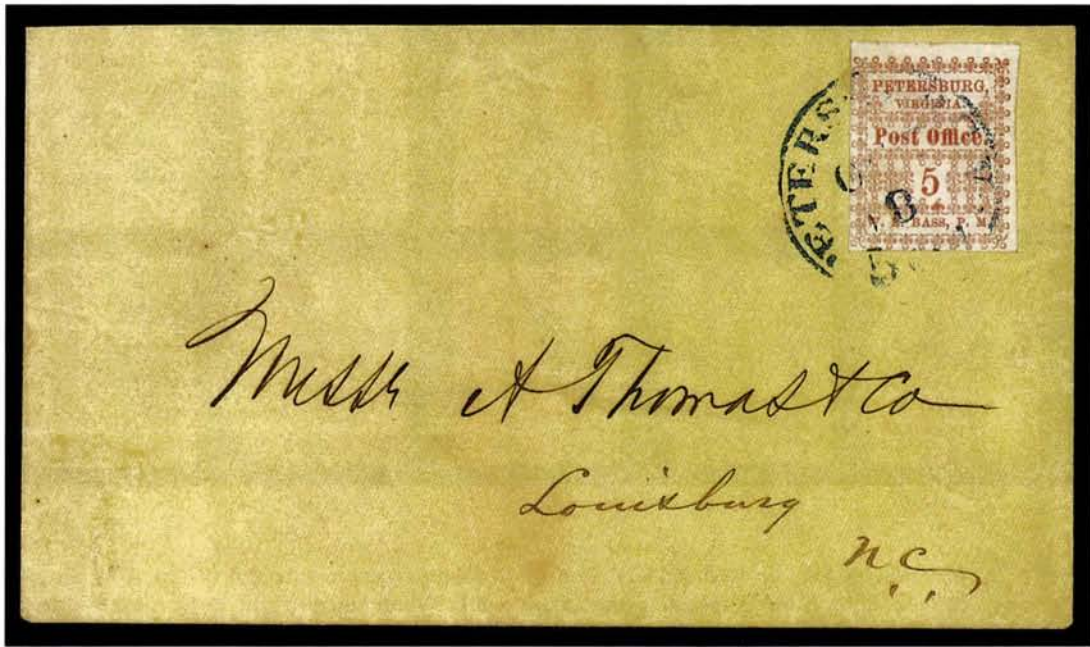 PETERSBURG,
VIRGINIA
Post Office
5
BASS, P. M.
ETERS
8
Messrs A Thomas & Co
Louisburg
N C